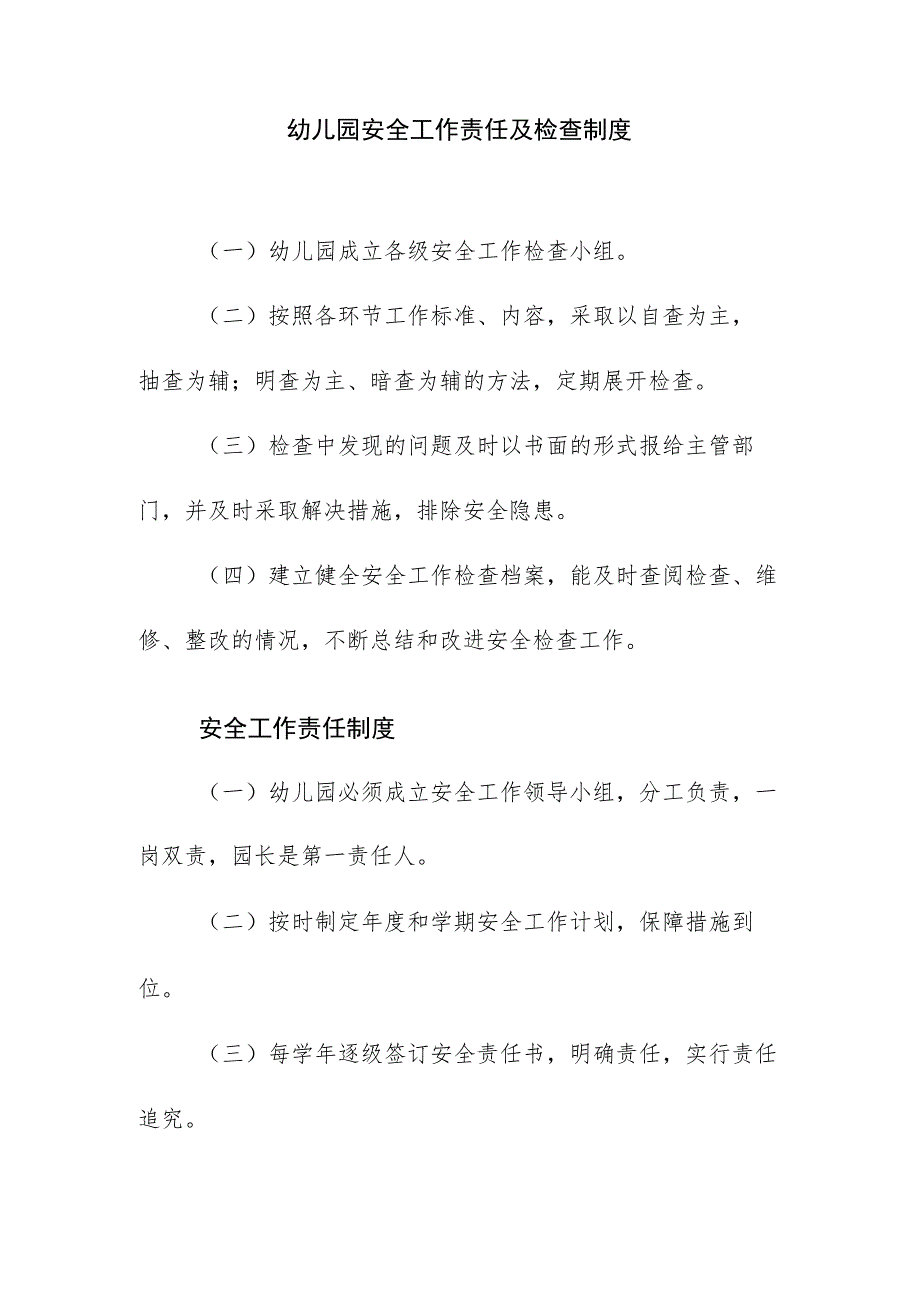 幼儿园安全工作责任及检查制度
（一）幼儿园成立各级安全工作检查小组。
（二）按照各环节工作标准、内容，采取以自查为主，
抽查为辅；明查为主、暗查为辅的方法，定期展开检查。
（三）检查中发现的问题及时以书面的形式报给主管部
门，并及时采取解决措施，排除安全隐患。
（四）建立健全安全工作检查档案，能及时查阅检查、维
修、整改的情况，不断总结和改进安全检查工作。
安全工作责任制度
（一）幼儿园必须成立安全工作领导小组，分工负责，一
岗双责，园长是第一责任人。
（二）按时制定年度和学期安全工作计划，保障措施到
位。
（三）每学年逐级签订安全责任书，明确责任，实行责任
追究。